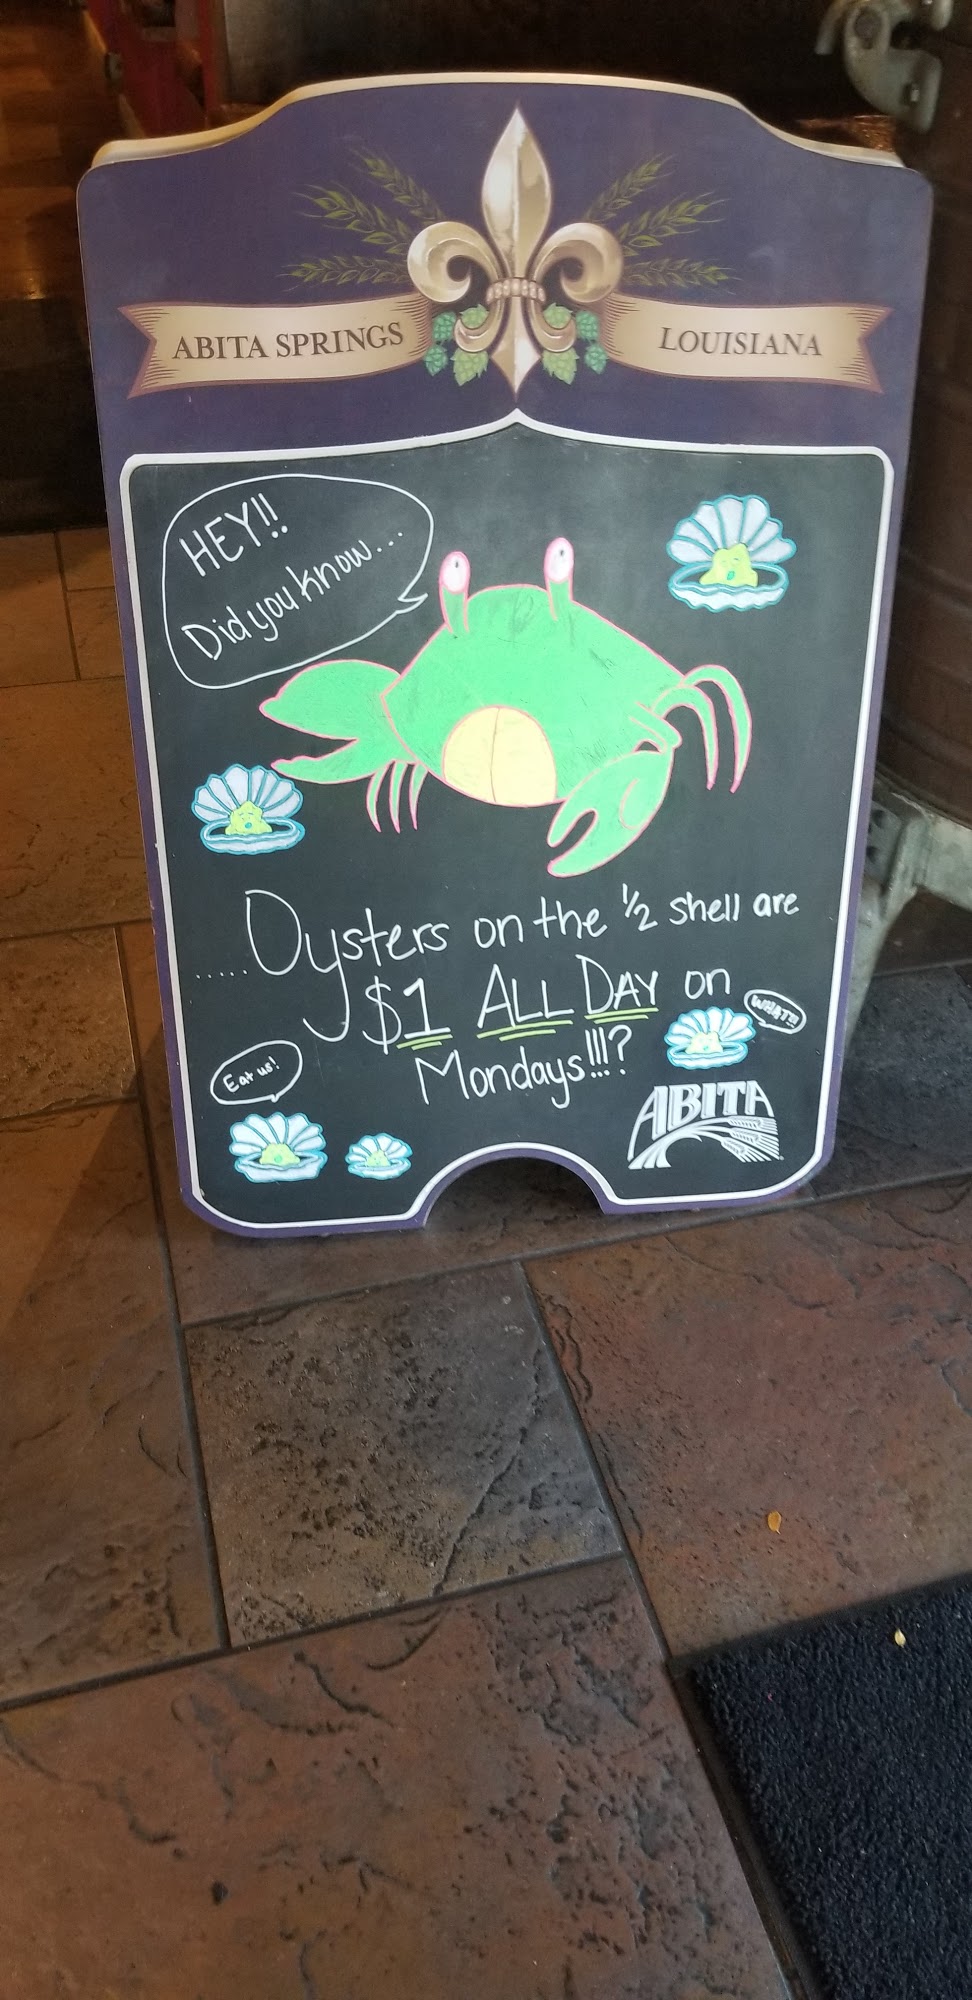 ABITA SPRINGS LOUISIANA
HEY!!
Did you know...
.....Oysters on the 1/2 shell are
$1 ALL DAY on
Mondays!!!?
WHAT?!!
Eat us!
ABITA